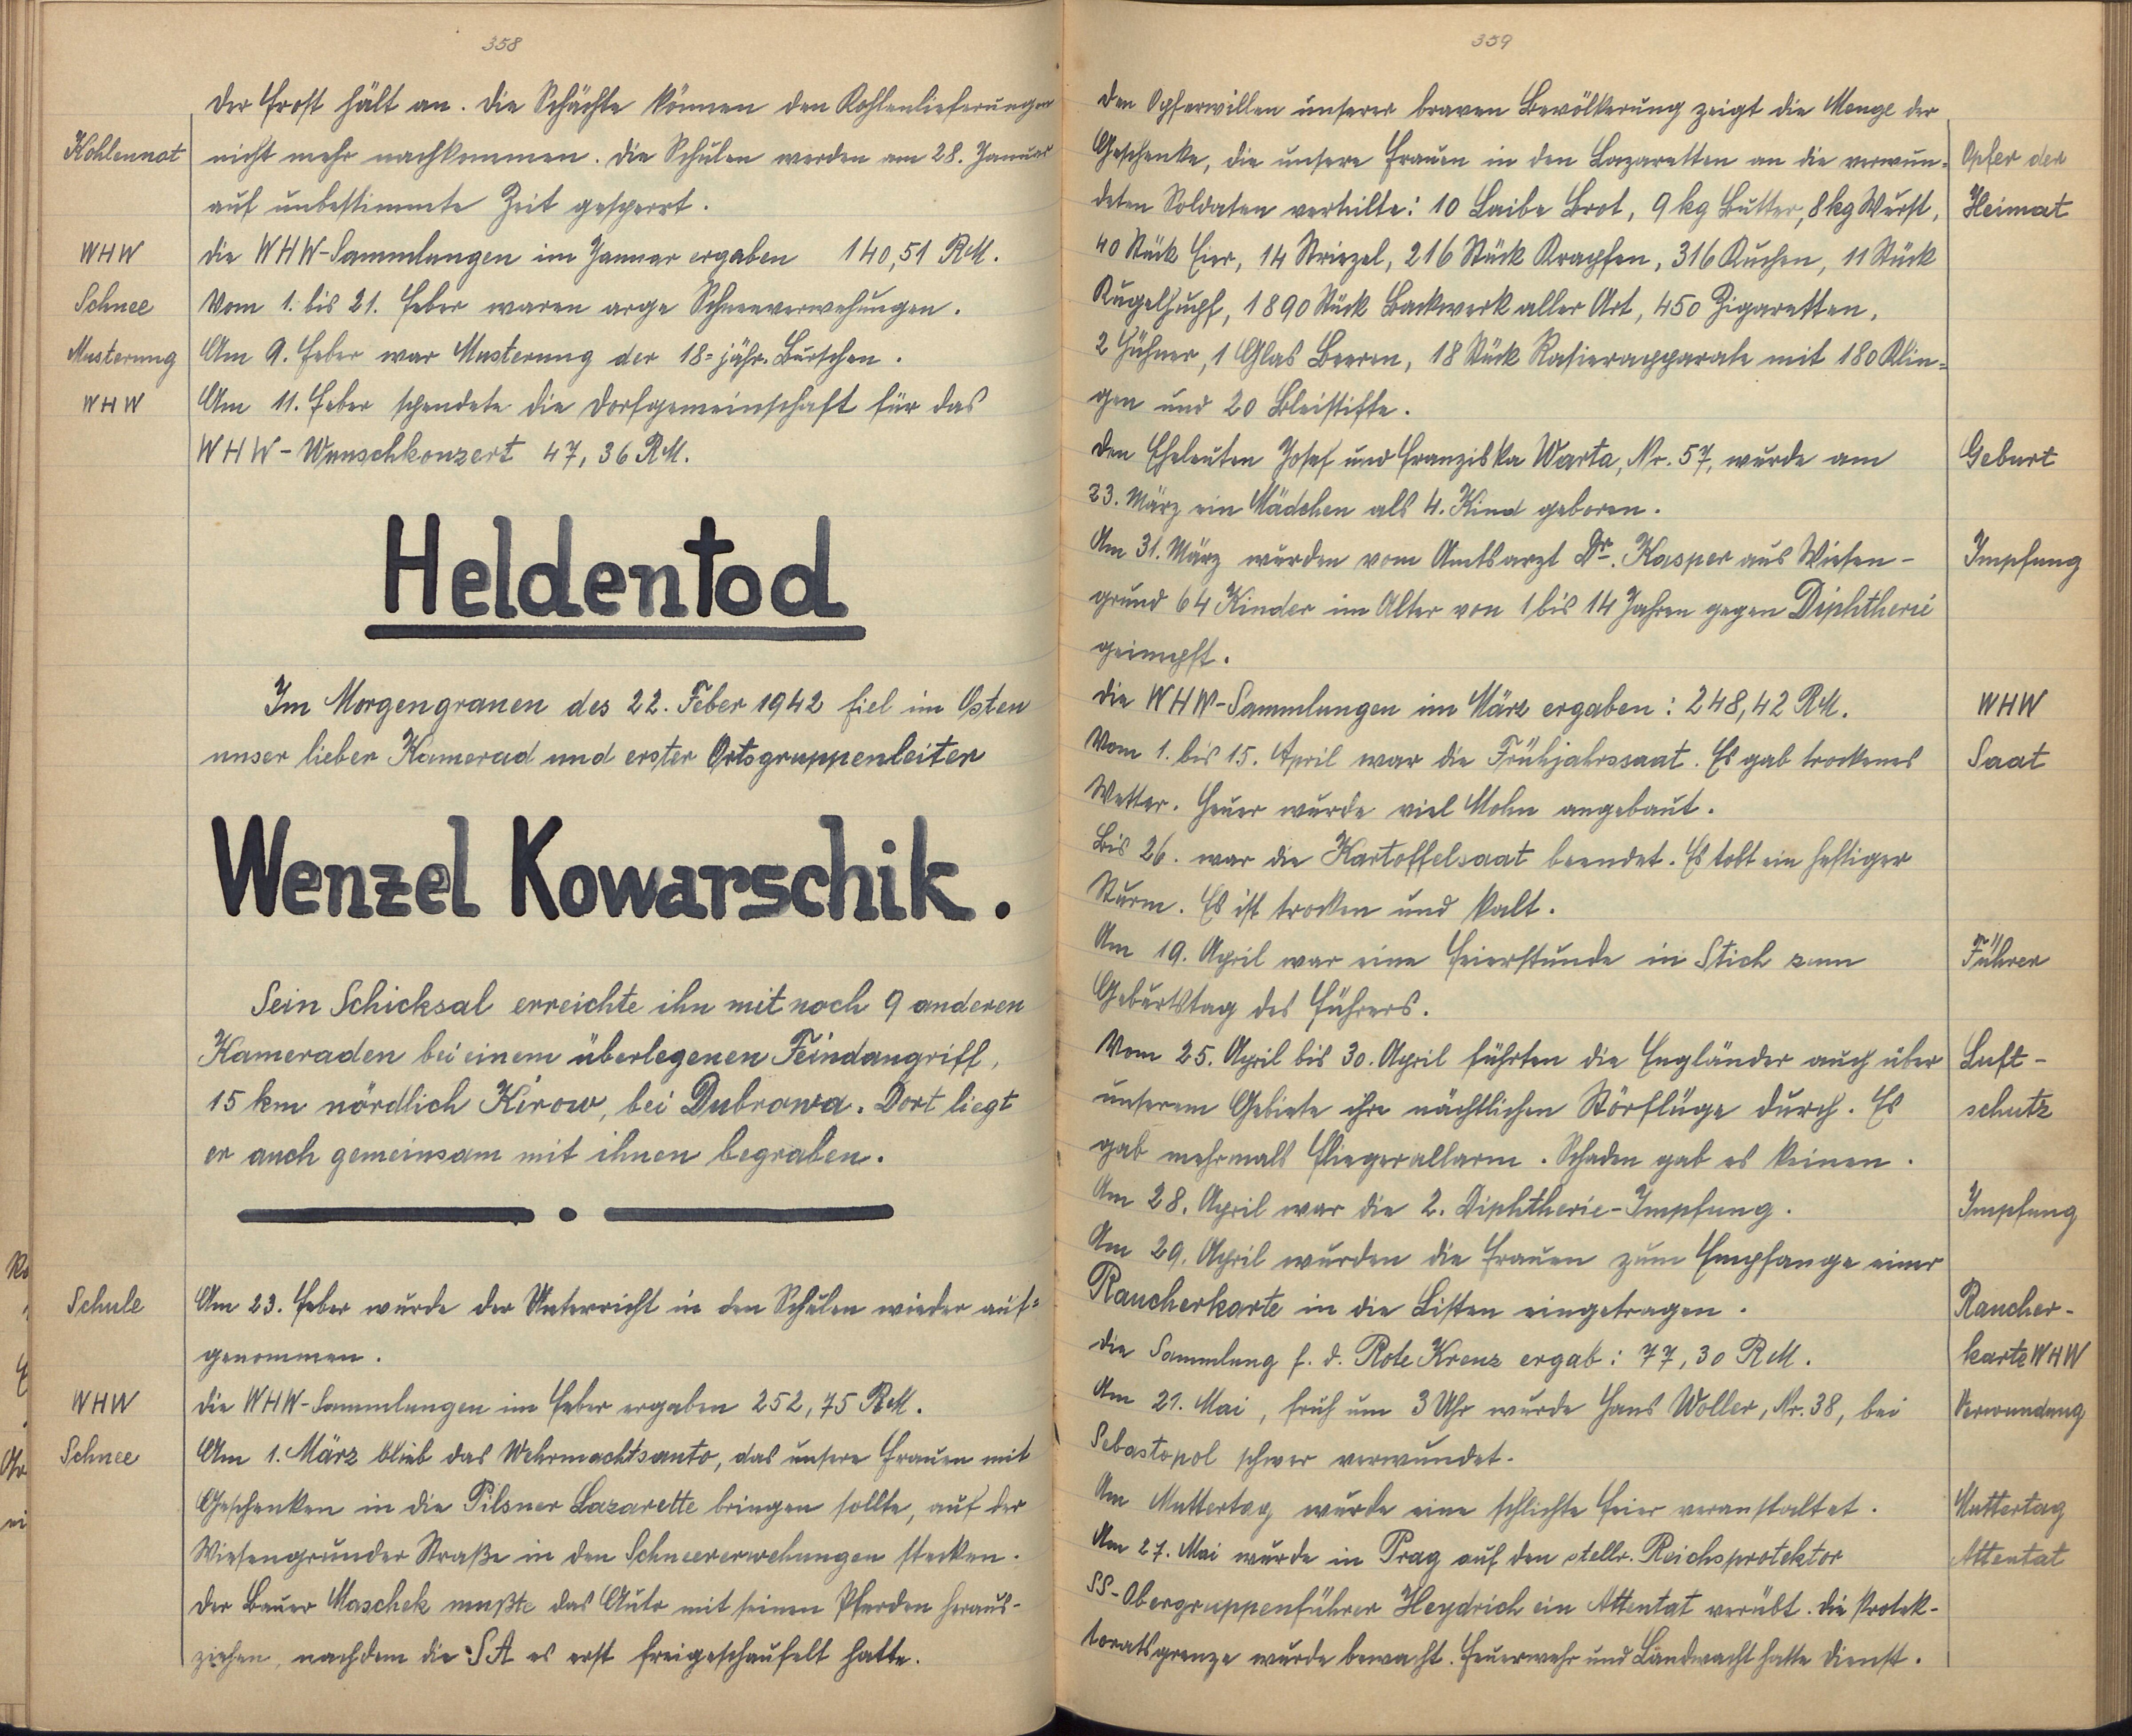 358
Der Frost hält an. Die Schächte können den Kohlenlieferungen
Kohlennot
nicht mehr nachkommen. Die Schulen werden am 28. Januar
auf unbestimmte Zeit gesperrt.
WHW
Die WHW-Sammlungen im Januar ergaben 140,51 RM.
Schnee
Vom 1. bis 21. Feber waren arge Schneeverwehungen.
Musterung
Am 9. Feber war Musterung der 18=jähr. Burschen.
WHW
Am 11. Feber spendete die Dorfgemeinschaft für das
WHW-Wunschkonzert 47,36 RM.
Heldentod
Im Morgengrauen des 22. Feber 1942 fiel im Osten
unser lieber Kamerad und erster Ortsgruppenleiter
Wenzel Kowarschik.
Sein Schicksal erreichte ihn mit noch 9 anderen
Kameraden bei einem überlegenen Feindangriff,
15 km nördlich Kirow, bei Dubrowa. Dort liegt
er auch gemeinsam mit ihnen begraben.
Schule
Am 23. Feber wurde der Unterricht in den Schulen wieder auf=
genommen.
WHW
Die WHW-Sammlungen im Feber ergaben 252,75 RM.
Schnee
Am 1. März blieb das Wehrmachtsauto, das unsere Frauen mit
Geschenken in die Pilsner Lazarette bringen sollte, auf der
Wiesengrunder Straße in den Schneeverwehungen stecken.
Der Bauer Maschek mußte das Auto mit seinen Pferden heraus-
ziehen, nachdem die SA es erst freigeschaufelt hatte.
359
Den Opferwillen unserer braven Bevölkerung zeigt die Menge der
Geschenke, die unsere Frauen in den Lazaretten an die verwun=
Opfer der
deten Soldaten verteilte: 10 Laibe Brot, 9 kg Butter, 8 kg Wurst,
Heimat
40 Stück Eier, 14 Striezel, 216 Stück Krapfen, 316 Kuchen, 11 Stück
Kugelhupf, 1890 Stück Backwerk aller Art, 450 Zigaretten,
2 Hühner, 1 Glas Beeren, 18 Stück Rasierapparate mit 180 Klin=
gen und 20 Bleistifte.
Den Eheleuten Josef und Franziska Warta, Nr. 57, wurde am
Geburt
23. März ein Mädchen als 4. Kind geboren.
Am 31. März wurden vom Amtsarzt Dr. Kasper aus Wiesen-
Impfung
grund 64 Kinder im Alter von 1 bis 14 Jahren gegen Diphtherie
geimpft.
Die WHW-Sammlungen im März ergaben: 248,42 RM.
WHW
Vom 1. bis 15. April war die Frühjahrssaat. Es gab trockenes
Saat
Wetter. Heuer wurde viel Mohn angebaut.
Bis 26. war die Kartoffelsaat beendet. Es tobt ein heftiger
Sturm. Es ist trocken und kalt.
Am 19. April war eine Feierstunde in Stich zum
Führer
Geburtstag des Führers.
Vom 25. April bis 30. April führten die Engländer auch über
Luft-
unserem Gebiete ihre nächtlichen Störflüge durch. Es
schutz
gab mehrmals Fliegerallarm. Schaden gab es keinen.
Am 28. April war die 2. Diphtherie-Impfung.
Impfung
Am 29. April wurden die Frauen zum Empfange einer
Raucherkarte in die Listen eingetragen.
Raucher-
Die Sammlung f. d. Rote Kreuz ergab: 77,30 RM.
karte WHW
Am 21. Mai, früh um 3 Uhr wurde Hans Woller, Nr. 38, bei
Verwundung
Sebastopol schwer verwundet.
Am Muttertag wurde eine schlichte Feier veranstaltet.
Muttertag
Am 27. Mai wurde in Prag auf den stellv. Reichsprotektor
Attentat
SS-Obergruppenführer Heydrich ein Attentat verübt. Die Protek-
toratsgrenze wurde bewacht. Feuerwehr und Landwacht hatte Dienst.